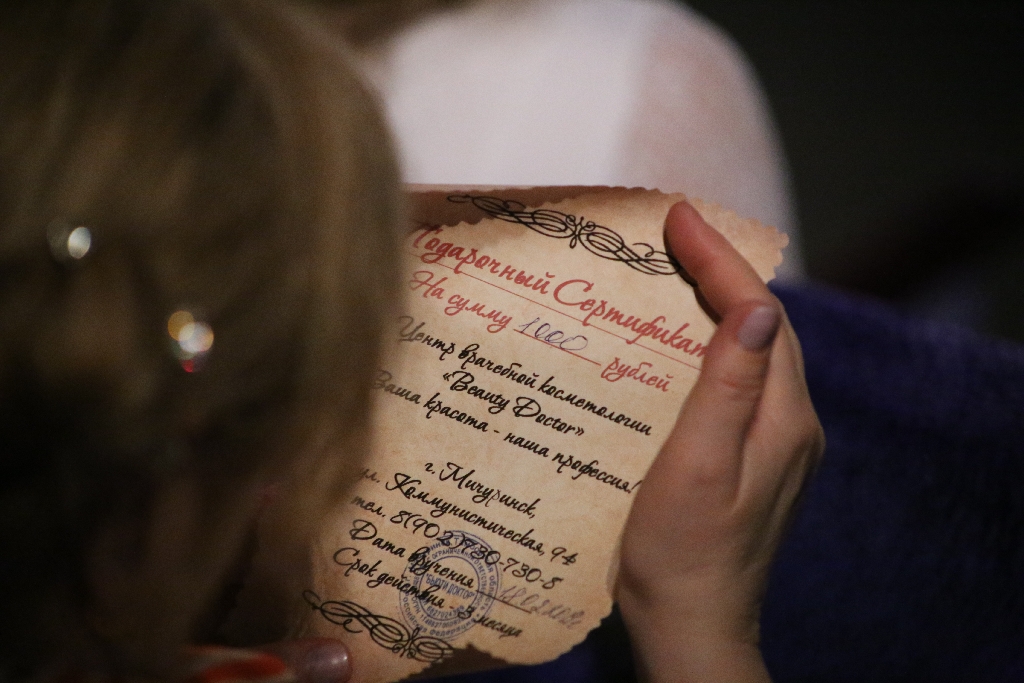 Подарочный Сертификат
На сумму 1000 рублей
Центр врачебной косметологии
«Beauty Doctor»
Ваша красота - наша профессия!
г. Мичуринск,
ул. Коммунистическая, 94
тел. 8(902)730-730-8
Дата вручения
Срок действия - 3 месяца
"БЬЮТИ ДОКТОР"